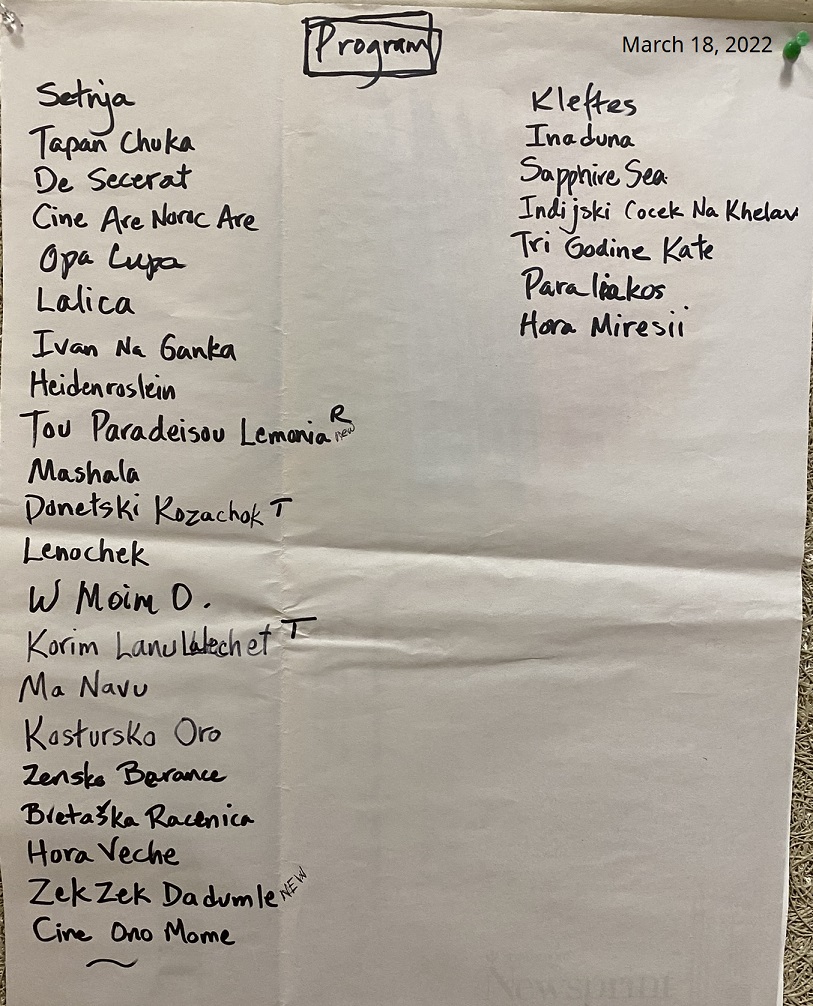 Program
March 18, 2022
Setnja
Tapan Chuka
De Secerat
Cine Are Noroc Are
Opa Cupa
Lalica
Ivan Na Ganka
Heidenroslein
Tou Paradeisou Lemonia R new
Mashala
Donetski Kozachok T
Lenochek
W Moim O.
Korim Lanu Lalechet T
Ma Navu
Kostursko Oro
Zensko Berance
Bletaška Racenica
Hora Veche
Zek Zek Dadumle NEW
Cine Ono Mome
Kleftes
Inaduna
Sapphire Sea
Indijski Cocek Na Khelav
Tri Godine Kate
Paraliakos
Hora Miresii
Newsprint